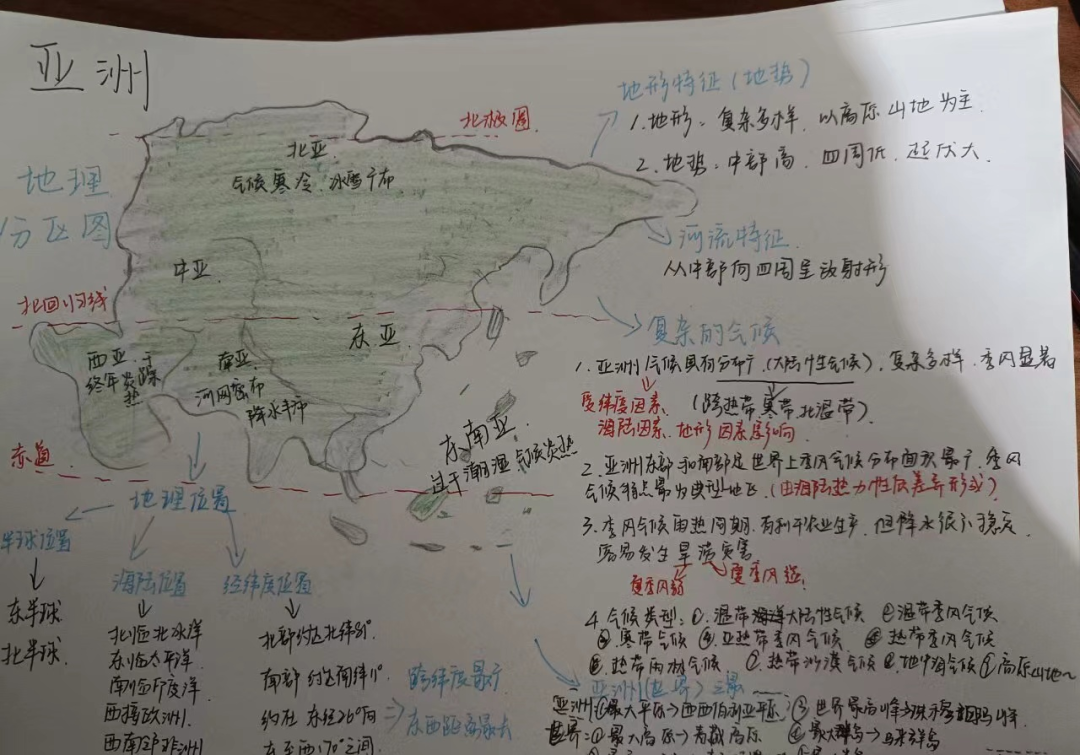 亚洲
地理
分区图
北极圈
北亚
气候寒冷.冰雪广布
中亚
北回归线
东亚
西亚.干
终年炎热
南亚
河网密布
降水丰沛
东南亚
过于潮湿 气候炎热
赤道
地形特征(地势)
1.地形:复杂多样.以高原山地为主.
2.地势:中部高.四周低.起伏大.
河流特征
从中部向四周呈放射形
复杂的气候
1.亚洲气候具有分布广(大陆性气候).复杂多样.季风显著
受纬度因素.(跨热带.寒带.北温带)
海陆因素.地形因素影响.
2.亚洲东部和南部是世界上季风气候分布面积最广.季风
气候特点最为典型地区.(由海陆热力性质差异形成)
3.季风气候雨热同期.有利于农业生产.但降水很不稳定.
容易发生旱涝灾害
夏季风弱 夏季风强.
4.气候类型:①.温带大陆性气候 ②温带季风气候
③.寒带气候 ④亚热带季风气候 ⑤热带季风气候
⑥热带雨林气候 ⑦.热带沙漠气候 地中海气候 高原山地
亚洲(世界)之最
亚洲:①最大平原→西西伯利亚平原 ③世界最高峰
世界:①最大高原→ 高原 ④最大群岛→马来群岛
地理位置
半球位置
东半球.
北半球.
海陆位置
北临北冰洋
东临太平洋.
南临印度洋.
西接欧洲.
西南邻非洲
经纬度位置
北部约达北纬81°
南部约达南纬11°
约在东经26°向
东至西170°之间.
跨纬度最广
东西距离最大